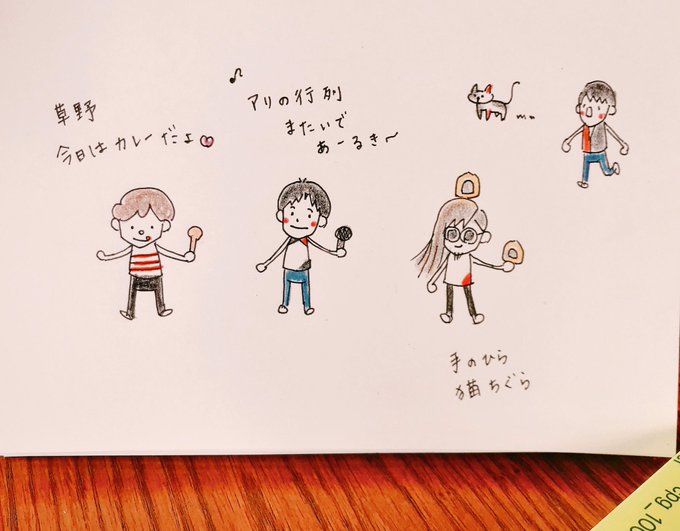 草野
今日はカレーだよ
アリの行列
またいで
あーるき〜
手のひら
猫ちぐら